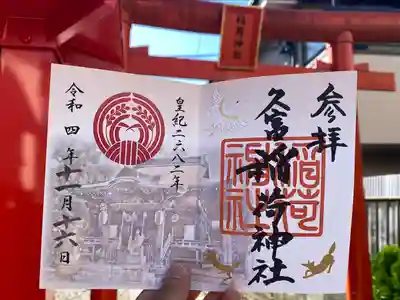 稲荷神社
参拝
久富稲荷神社
稲荷神社
皇紀二六八二年
令和四年十一月十六日